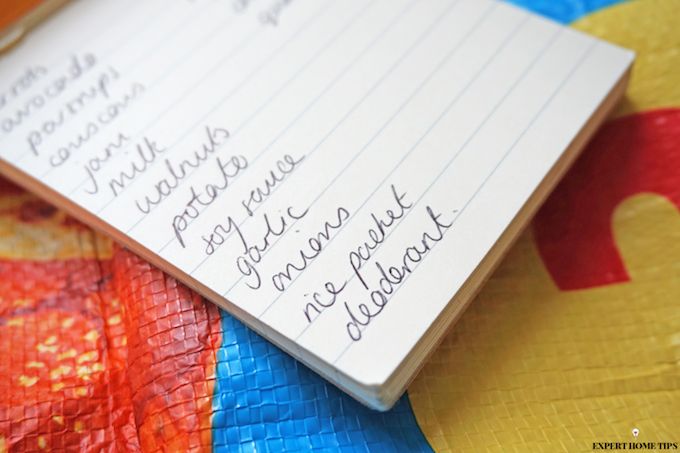 avocado
parsnips
couscous
jam
milk
walnuts
potato
soy sauce
garlic
onions
rice packet
deoderant.
EXPERT HOME TIPS